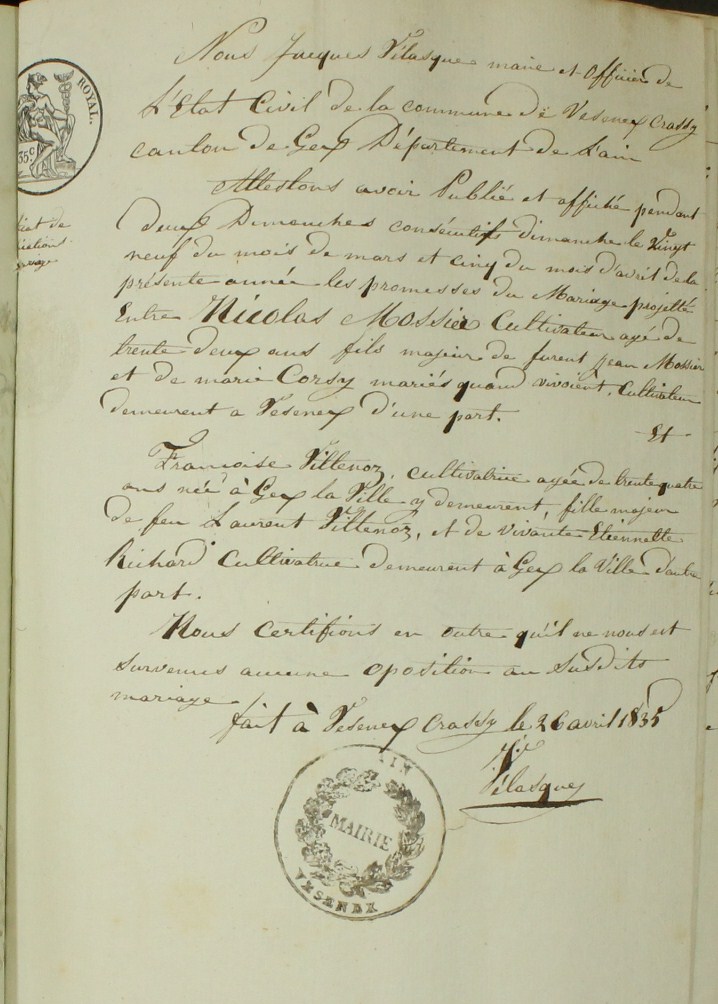 ROYAL.
35 c
Nous Jacques Vélasque maire et officier de
L'Etat Civil de la commune de Vesenex Crassy
canton de Gex Département de L'ain
Attestons avoir Publié et affiché pendant
deux Dimanches consécutifs dimanche le Vingt
neuf du mois de mars et cinq du mois d'avril de la
présente année les promesses du Mariage projetté
Entre Nicolas Mossier Cultivateur agé de
trente deux ans fils majeur de furent jean Mossier
et de marie Corsy mariés quand vivoient, Cultivateur
demeurent a Vesenex d'une part.
Et
Françoise Villenoz, cultivatrice agée de trente quatre
ans née à Gex la Ville y demeurent, fille majeur
de feu Laurent Villenoz, et de vivante Etiennette
Richard Cultivatrice demeurent à Gex la Ville d'autre
part.
Nous Certifions en outre qu'il ne nous est
survenus aucune oposition au susdits
mariage
fait à Vesenex Crassy le 26 avril 1835
Vélasque
AIN
MAIRIE
VESENEX